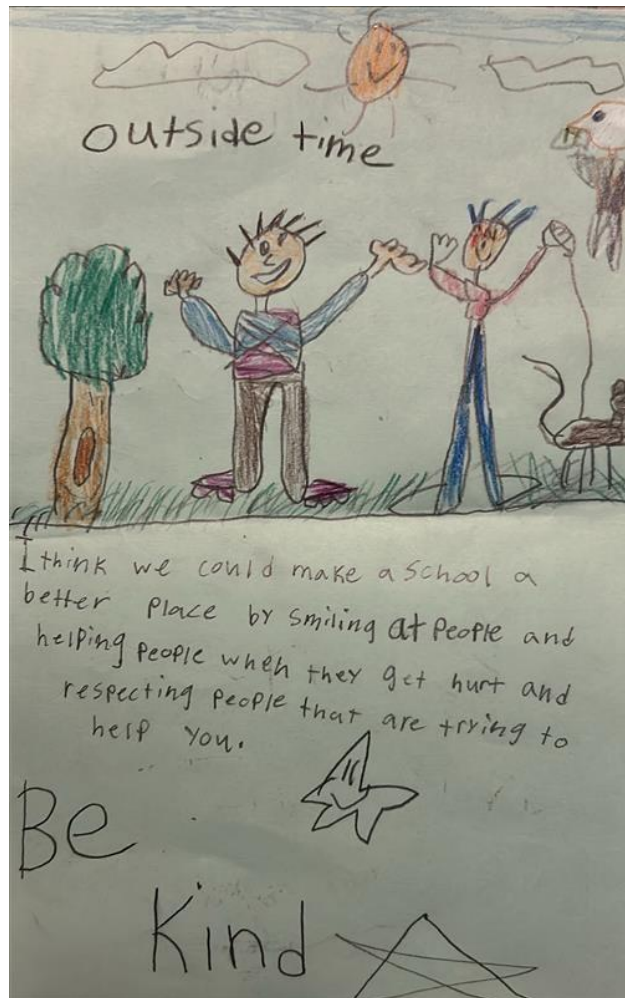 outside time
I think we could make a school a
better place by smiling at people and
helping people when they get hurt and
respecting people that are trying to
help you.
Be
Kind